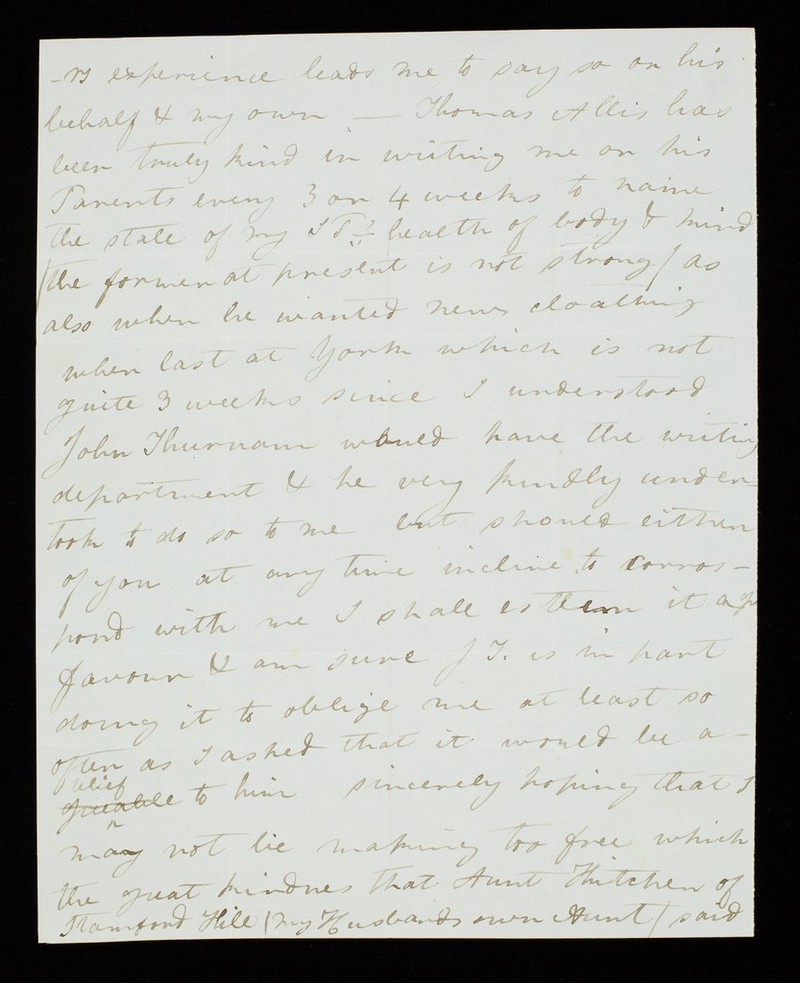 -rs experience leads me to say so on his
behalf & my own — Thomas Allis has
been truly kind in writing me or his
Parents every 3 or 4 weeks to name
the state of my health of body & mind
(the former at present is not strong) as
also when he wanted new cloathing
when last at York which is not
quite 3 weeks since I understood
John Thurnam would have the writing
department & he very kindly under=
took to do so to me but should either
of you at any time incline to corros-
pond with me I shall esteem it a
favour & am sure J T. is in part
doing it to oblige me at least so
often as I asked that it would be a-
relief to him sincerely hoping that I
may not be making too free which
the great kindnes that Aunt Kitchen of
Stamford Hill (my Husbands own Aunt) said